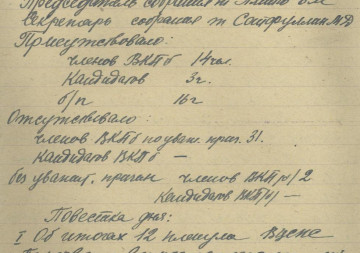 Председатель собрания т.
Секретарь собрания т Сайфуллин М.Д
Присутствовало:
членов ВКПб 14 чел.
Кандидатов 3 ч.
б/п 16 ч
Отсутствовало:
членов ВКПб по уваж. прич. 31.
Кандидатов ВКПб —
без уважит. причин членов ВКП/б/ 2
Кандидатов ВКП/б/ —
Повестка дня:
I Об итогах 12 пленума ВЦСПС